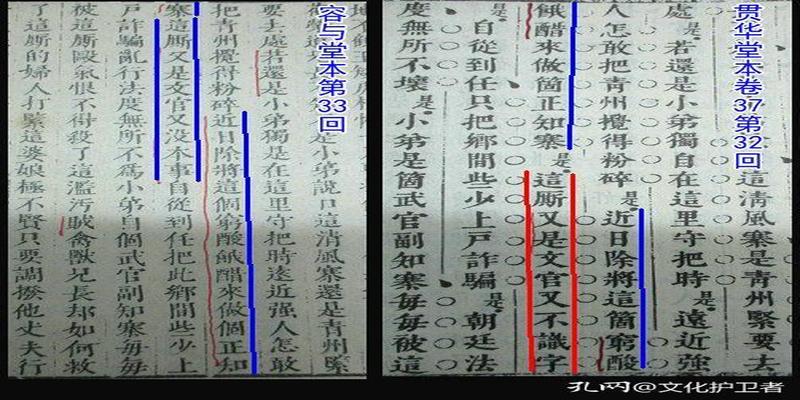 贯华堂本卷37第32回
這清風寨是青州緊要去
處是若還是小弟獨自在這里守把時是遠近強
人怎敢把青州攪得粉碎是近日除將這箇窮酸
餓醋來做箇正知寨是這厮又是文官又不識字
自從到任只把鄉間些少上戶詐騙是朝廷法
度無所不壞是小弟是箇武官副知寨每每被這
容与堂本第33回
是小弟說口這清風寨還是青州緊
要去處若還是小弟獨是在這里守把時遠近強人怎敢
把青州攪得粉碎近日除將這個窮酸餓醋來做個正知
寨這厮又是文官又没本事自從到任把此鄉間些少上
戶詐騙亂行法度無所不爲小弟自個武官副知寨每每
被這厮毆氣恨不得殺了這濫汚賊禽獸兄長却如何救
了這厮的婦人打緊這婆娘極不賢只要調撥他丈夫行
孔网@文化护卫者